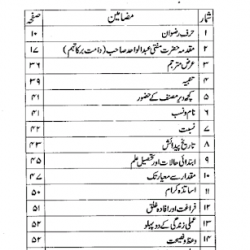 شمار مضامین صفحہ
۱ حرف رضوان ۱۰
۲ مقدمہ حضرت مفتی عبدالواحد صاحب (دامت برکاتہم) ۱۷
۳ عرض مترجم ۳۶
۴ ۳۹
۵ کچھ دیر مصنف کے حضور ۴۱
۶ نام و نسب ۴۱
۷ نسبت ۴۲
۸ تاریخ پیدائش ۴۳
۹ ابتدائی حالات اور تحصیل علم ۴۵
۱۰ مقدار سے معیار تک ۴۷
۱۱ اساتذہ کرام ۵۰
۱۲ فراغت اور افادہ خلق ۵۱
۱۳ عملی زندگی کے دو پہلو ۵۲
۱۴ وعظ و نصیحت ۵۲